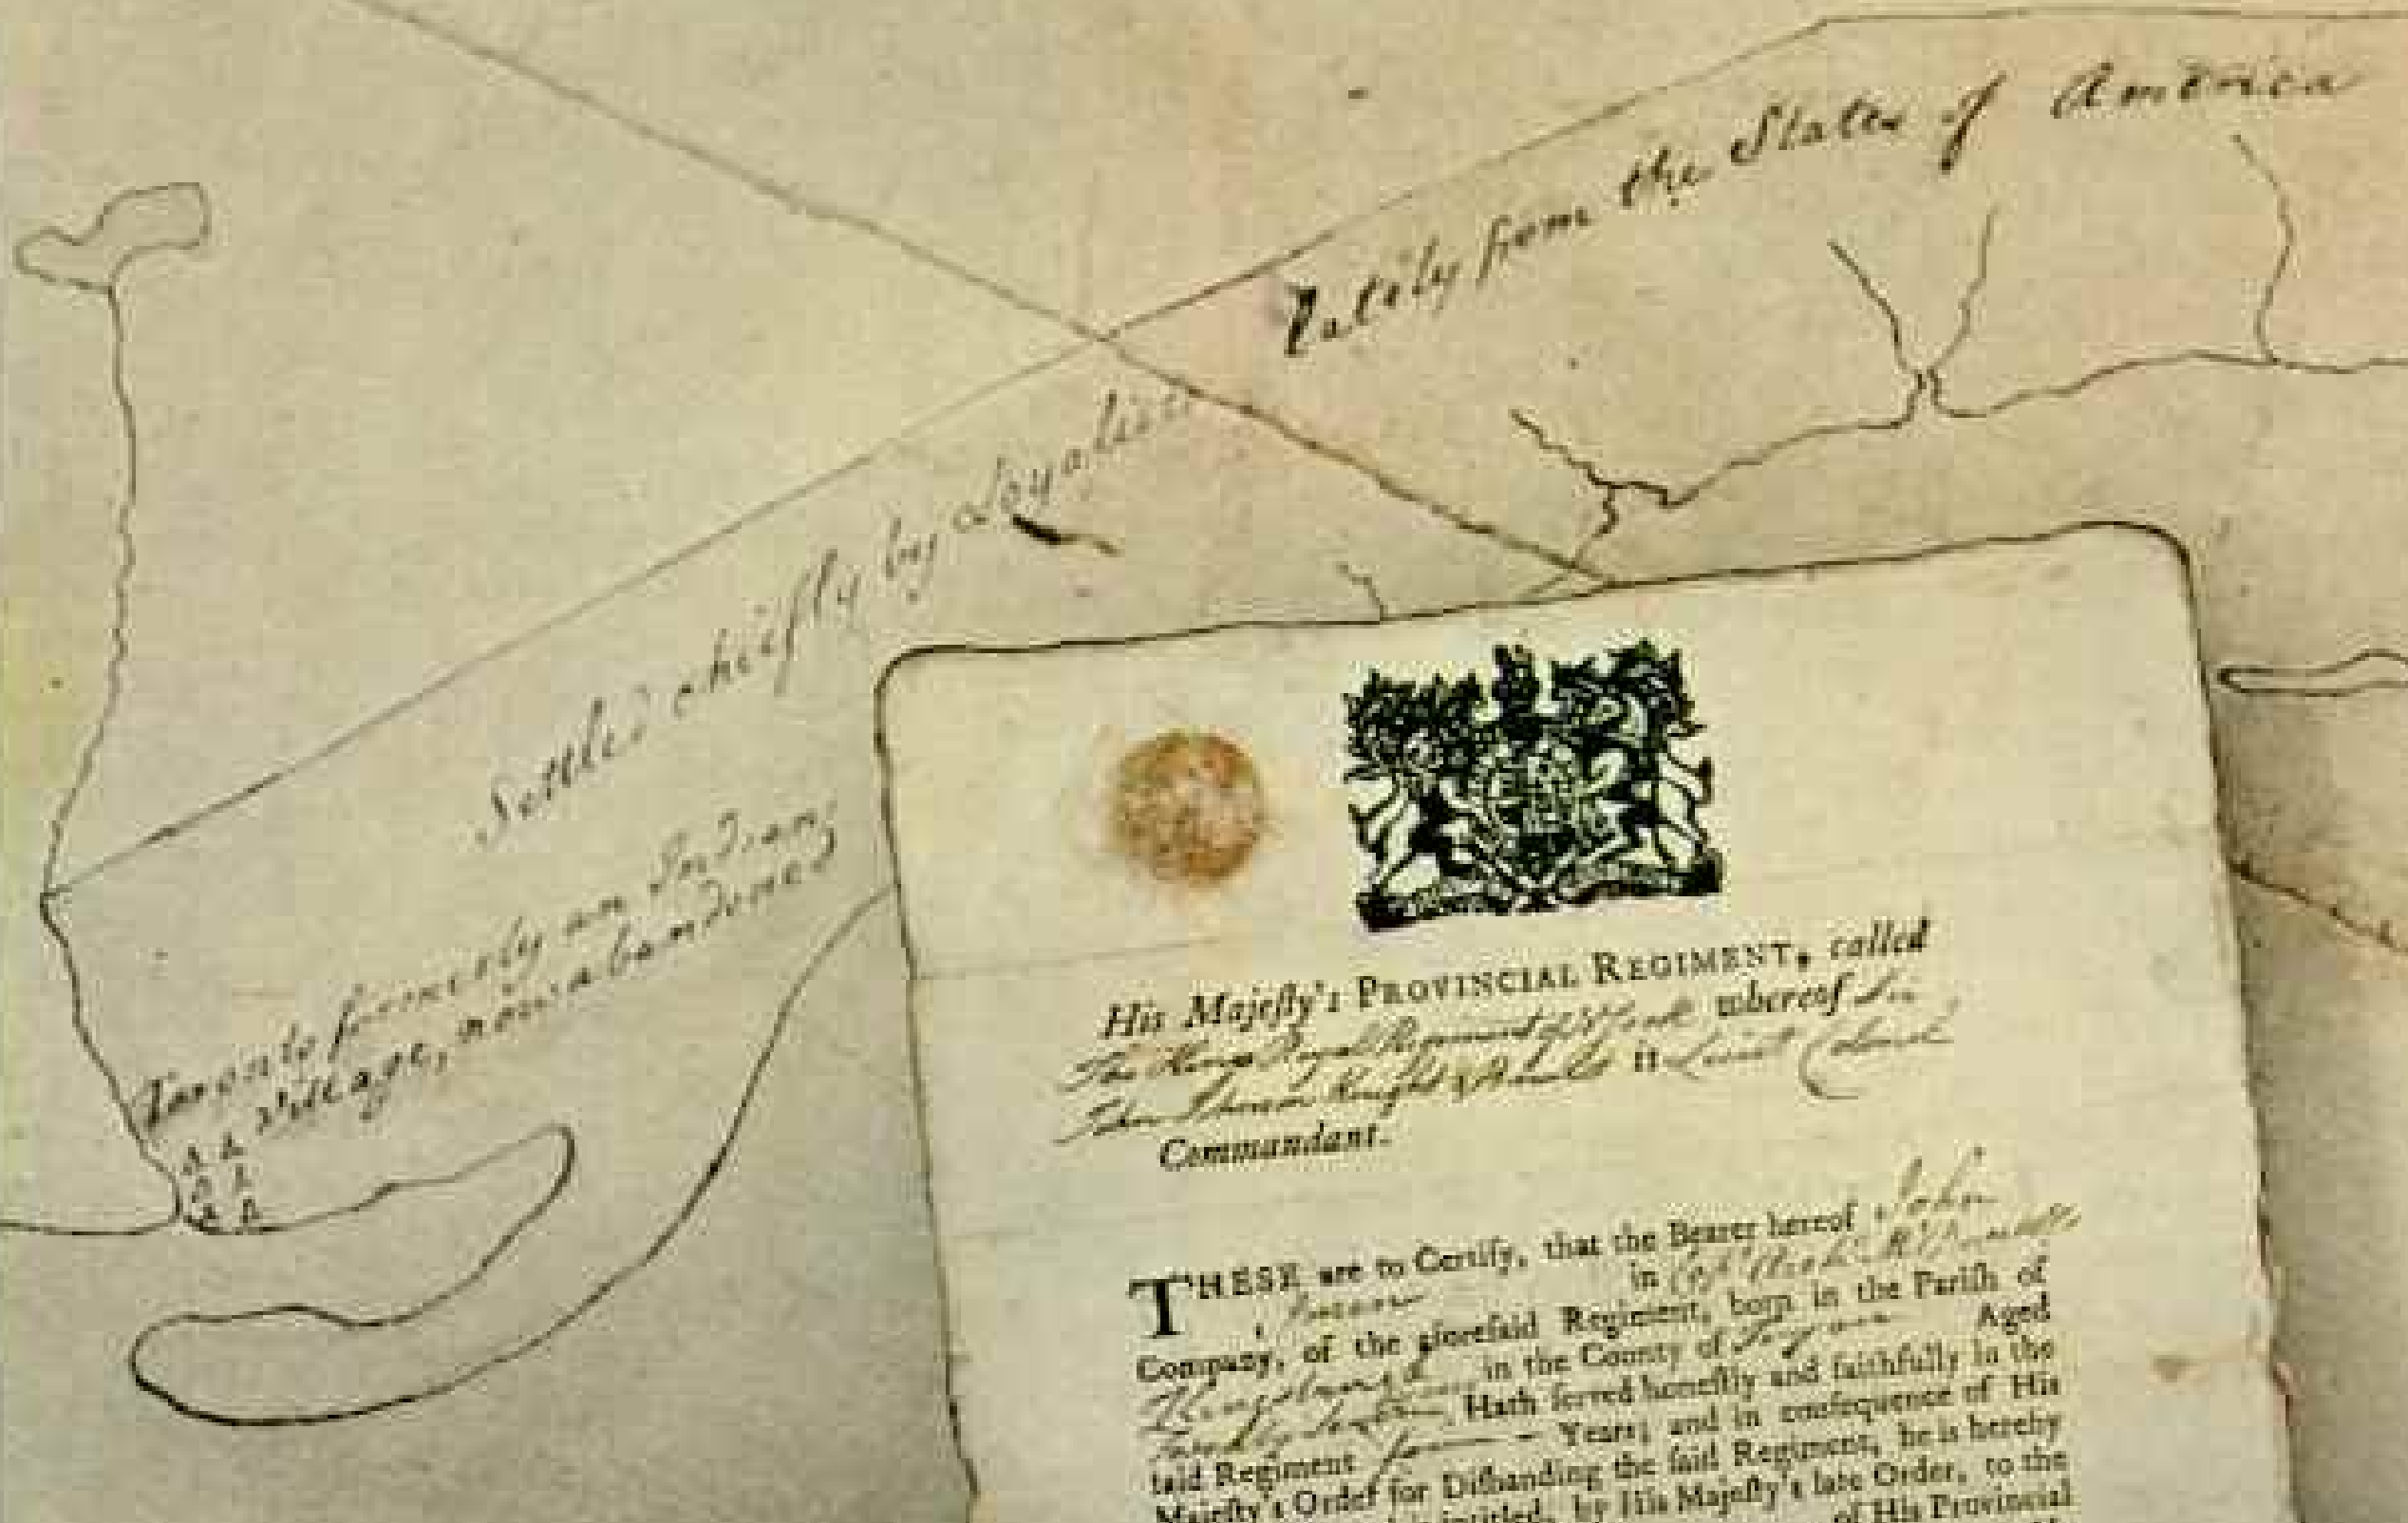 Lately from the States of America
Settled chiefly by Loyalists
Toronto formerly an Indian
village, now abandoned
His Majeſty's PROVINCIAL REGIMENT, called
The Kings Royal Regiment of N York whereof Sir
John Johnson Knight & Baronet is Lieut Colonel
Commandant.
THESE are to Certify, that the Bearer hereof John
in Capt
Company, of the aforeſaid Regiment, born in the Pariſh of
Kingsborough in the County of Tryon Aged
Hath ſerved honeſtly and faithfully in the
ſaid Regiment four Years; and in conſequence of His
Majeſty's Order for Diſbanding the ſaid Regiment, he is hereby
intitled, by His Majeſty's late Order, to the
of His Provincial